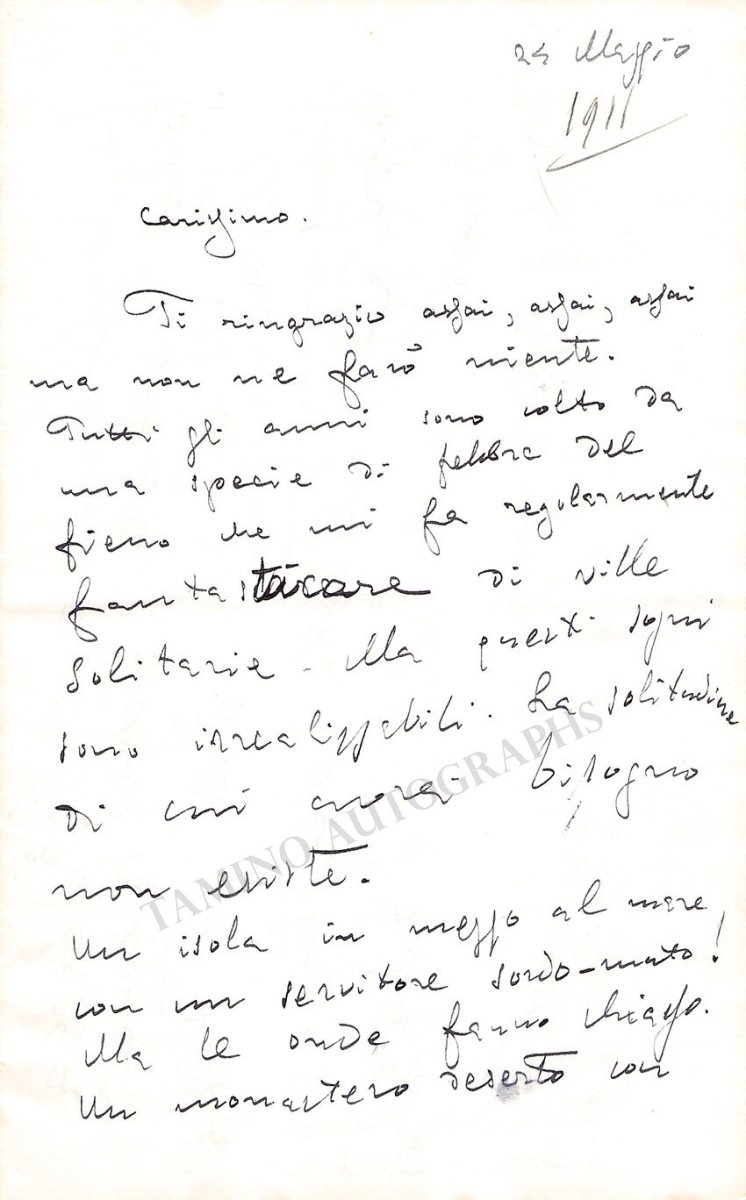 24 Maggio
1911
Carissimo.
Ti ringrazio assai, assai, assai
ma non ne farò niente.
Tutti gli anni sono colto da
una specie di febbre del
fieno che mi fa regolarmente
fantasticare di ville
solitarie. Ma questi sogni
sono irrealizzabili. La solitudine
di cui avrei bisogno
non esiste.
Un isola in mezzo al mare
con un servitore sordo-muto!
Ma le onde fanno chiasso.
Un monastero deserto con
TAMINO AUTOGRAPHS